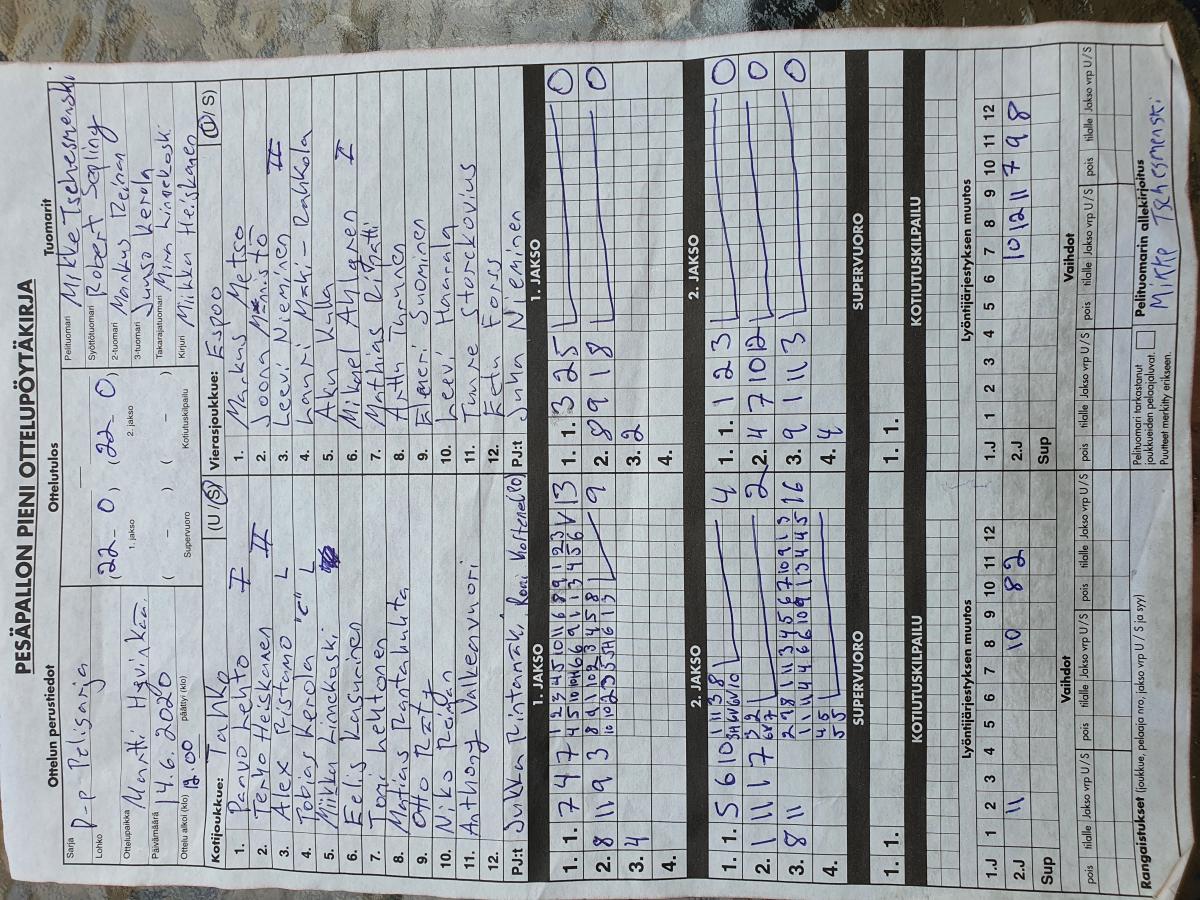 PESÄPALLON PIENI OTTELUPÖYTÄKIRJA
Ottelun perustiedot
Sarja P-P Pelisarja
Lohko
Ottelupaikka Martti Hyvinkää
Päivämäärä 14.6.2020
Ottelu alkoi (klo) 12.00 päättyi (klo)
Ottelutulos
(22 - 0, 22 - 0)
1. jakso 2. jakso
( - ) ( - )
Supervuoro Kotiutuskilpailu
Tuomarit
Pelituomari Mikke Tschesmenski
Syöttötuomari Robert Segling
2-tuomari Markus Reinan
3-tuomari Juuso Kerola
Takarajatuomari Mira Linnekoski
Kirjuri Miikka Heiskanen
Kotijoukkue: Tahko (U/S)
1. Paavo Lehto I
2. Terho Heiskanen II
3. Alex Ristamo L
4. Tobias Kerola "C" L
5. Miikka Limekoski
6. Eelis Kasurinen
7. Toni Lehtonen
8. Matias Rantahuhta
9. Otto Räty
10. Niko Reinan
11. Anthony Valkeavuori
12.
PJ:t Jukka Rintamäki,
Vierasjoukkue: Espoo (U/S)
1. Markus Metso
2. Joona
3. Leevi Nieminen II
4. Lauri Mäki-Rahkola
5. Aku Kulla
6. Mikael Ahlgren I
7. Mathias
8. Arttu Ihonen
9. Elmeri Suominen
10. Leevi Haarala
11. Tuure Storckovius
12. Eetu Forss
PJ:t Juha Nieminen
1. JAKSO
1. 1. 7 4 7 13
2. 8 11 9 3 9
3. 4
4.
1. JAKSO
1. 1. 3 2 5 0
2. 8 9 1 8 0
3. 2
4.
2. JAKSO
1. 1. 5 6 10 4
2. 1 11 1 7 2
3. 8 11 16
4.
2. JAKSO
1. 1. 1 2 3 0
2. 4 7 10 12 0
3. 9 1 11 3 0
4. 4
SUPERVUORO
1. 1.
SUPERVUORO
1. 1.
KOTIUTUSKILPAILU
KOTIUTUSKILPAILU
Lyöntijärjestyksen muutos
1.J 1 2 3 4 5 6 7 8 9 10 11 12
2.J 11 10 8 2
Sup
Lyöntijärjestyksen muutos
1.J 1 2 3 4 5 6 7 8 9 10 11 12
2.J 10 12 11 7 9 8
Sup
Vaihdot
pois tilalle Jakso vrp U/S pois tilalle Jakso vrp U/S pois tilalle Jakso vrp U/S
Vaihdot
pois tilalle Jakso vrp U/S pois tilalle Jakso vrp U/S pois tilalle Jakso vrp U/S
Rangaistukset (joukkue, pelaaja nro, jakso vrp U/S ja syy)
Pelituomari tarkastanut
joukkueiden pelaajaluvat.
Puutteet merkitty erikseen.
Pelituomarin allekirjoitus
Mikko Tschesmenski